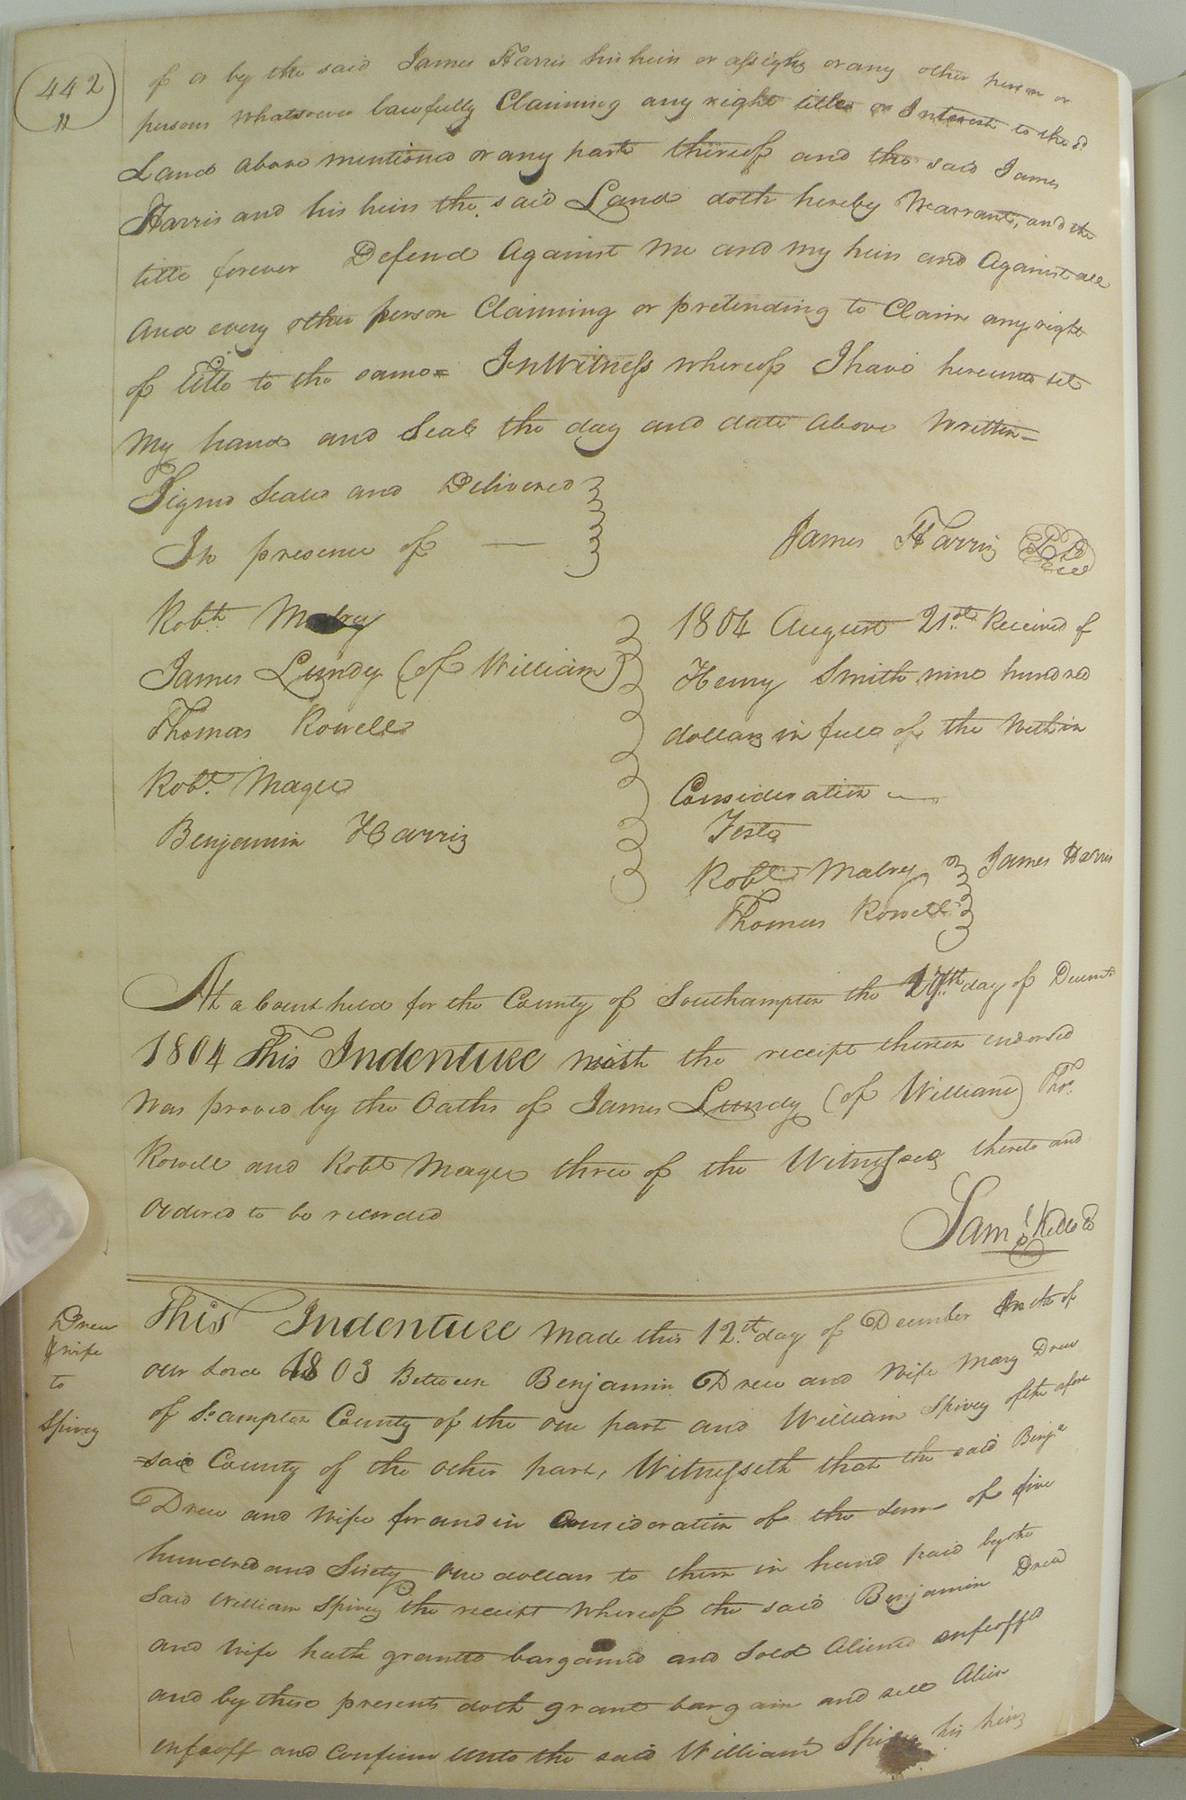 442
"
of or by the said James Harris his heirs or assighs or any other person or
persons whatsoever lawfully Claiming any right title or Interest to the sd
Land above mentioned or any part thereof and the said James
Harris and his heirs the said Land doth hereby Warrant, and the
title forever Defend Against me and my heirs and Against all
And every other person Claiming or pretending to Claim any right
of Title to the same = In Witness whereof I have hereunto set
My hand and Seal the day and date above Written =
Signd Seald and Delivered
In presence of —
James Harris
Robt. Mabry
James Lundy (of William)
Thomas Rowell
Robt. Magee
Benjamin Harris
1804 August 21st. Received of
Henry Smith nine hundred
dollars in full of the Within
Consideration
Teste
Robt. Mabry
Thomas Rowell
James Harris
At a Court held for the County of Southampton the 17th day of Decemr.
1804 This Indenture with the receipt thereon endorsed
Was proved by the Oaths of James Lundy (of William) Thos.
Rowell and Robt Magee three of the Witnesses thereto and
Ordered to be recorded
Saml. Kello
Drew
& wife
to
Spivey
This Indenture Made this 12th. day of December in the of
our Lord 1803 Between Benjamin Drew and Wife Mary Drew
of So:ampton County of the one part and William Spivey of the afore
=said County of the other part, Witnesseth that the said Benja.
Drew and Wife for and in Consideration of the Sum of five
hundred and Sixty One dollars to them in hand paid by the
Said William Spivey the receipt Whereof the said Benjamin Drew
and Wife hath granted bargained and Sold Aliened enfeoffd
and by these presents doth grant bargain and sell Alien
enfeoff and Confirm Unto the said William Spivey his heirs